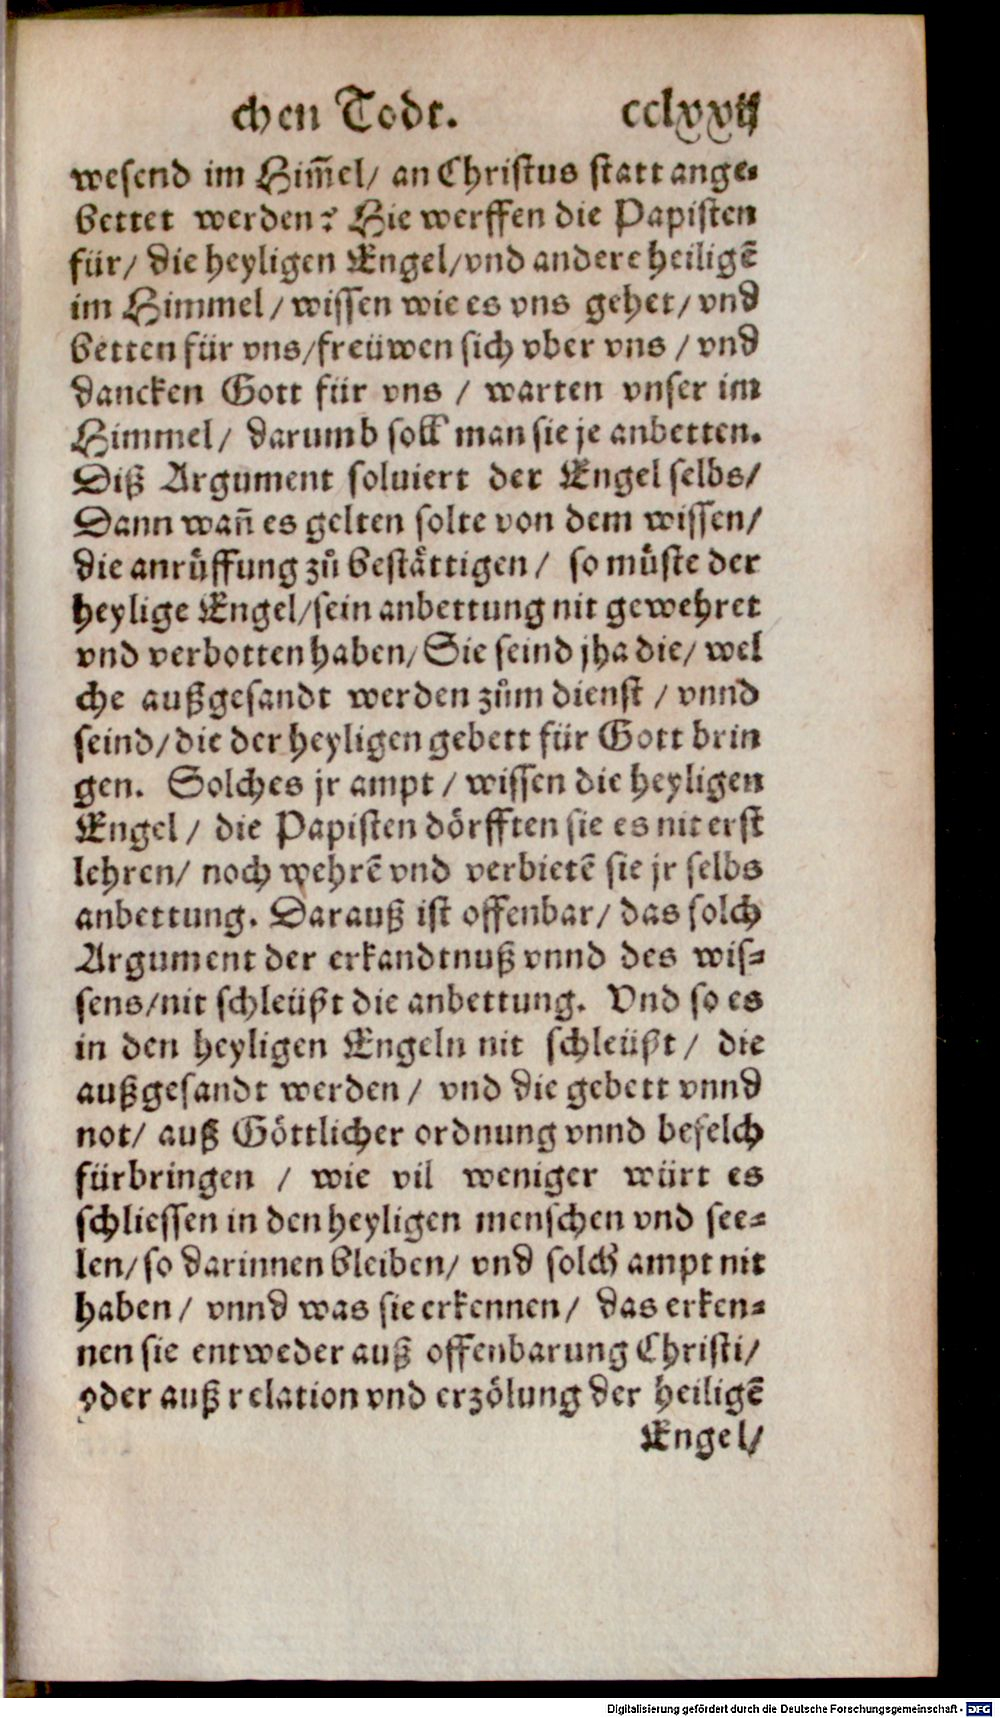 chen Todt. cclxxij
wesend im Him̃el/ an Christus statt ange-
bettet werden? Hie werffen die Papisten
für/ die heyligen Engel/vnd andere heiligẽ
im Himmel/ wissen wie es vns gehet/ vnd
betten für vns/freüwen sich vber vns / vnd
dancken Gott für vns / warten vnser im
Himmel/ darumb soll man sie je anbetten.
Diß Argument soluiert der Engel selbs/
Dann wañ es gelten solte von dem wissen/
die anrůffung zů bestättigen/ so müste der
heylige Engel/sein anbettung nit gewehret
vnd verbotten haben/ Sie seind jha die/ wel
che außgesandt werden zům dienst / vnnd
seind/die der heyligen gebett für Gott brin
gen. Solches jr ampt / wissen die heyligen
Engel / die Papisten dörfften sie es nit erst
lehren/ noch wehrẽ vnd verbietẽ sie jr selbs
anbettung. Darauß ist offenbar/ das solch
Argument der erkandtnuß vnnd des wis-
sens/nit schleüßt die anbettung. Vnd so es
in den heyligen Engeln nit schleüßt/ die
außgesandt werden/ vnd die gebett vnnd
not/ auß Göttlicher ordnung vnnd befelch
fürbringen / wie vil weniger würt es
schliessen in den heyligen menschen vnd see-
len/ so darinnen bleiben/ vnd solch ampt nit
haben/ vnnd was sie erkennen/ das erken-
nen sie entweder auß offenbarung Christi/
oder auß relation vnd erzölung der heiligẽ
Engel/
Digitalisierung gefördert durch die Deutsche Forschungsgemeinschaft - DFG